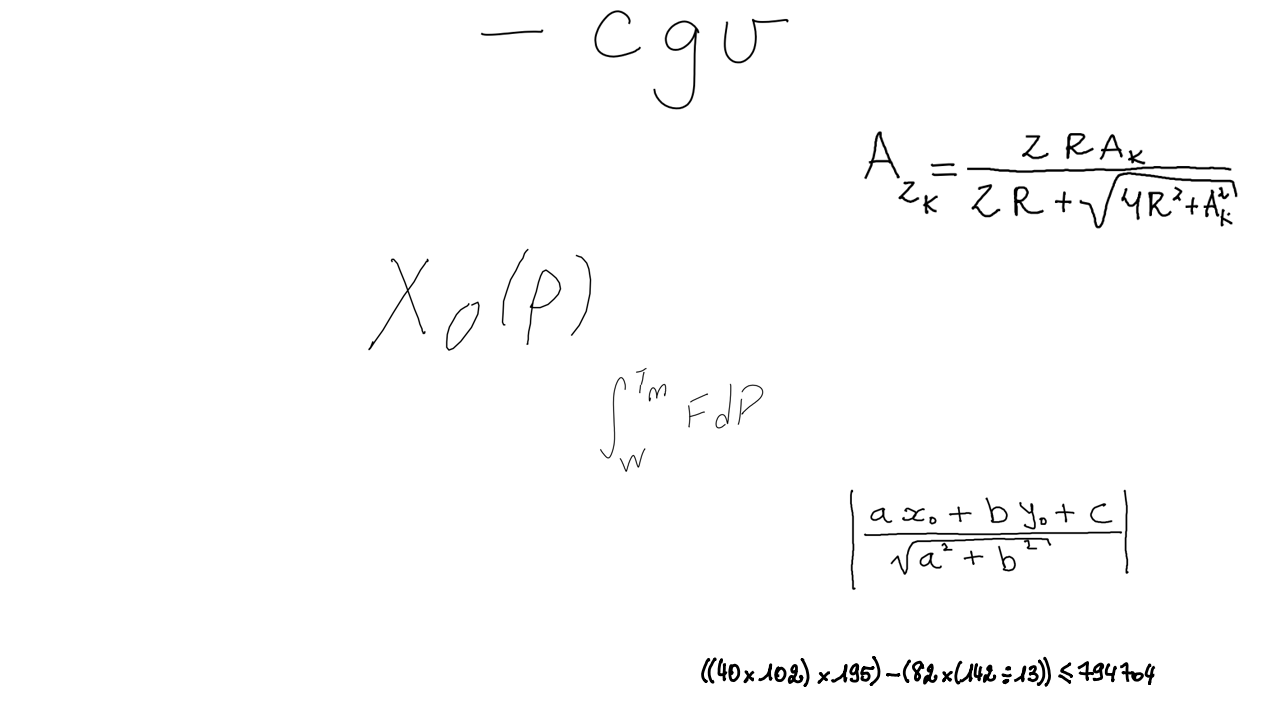 − c g v
A_{2K} = \frac{2 R A_K}{2 R + \sqrt{4R^2 + A_K^2}}
X_0(p)
\int_W^{T_m} F dP
\left| \frac{a x_0 + b y_0 + c}{\sqrt{a^2 + b^2}} \right|
((40×102)×195)−(82×(142÷13))≤794704